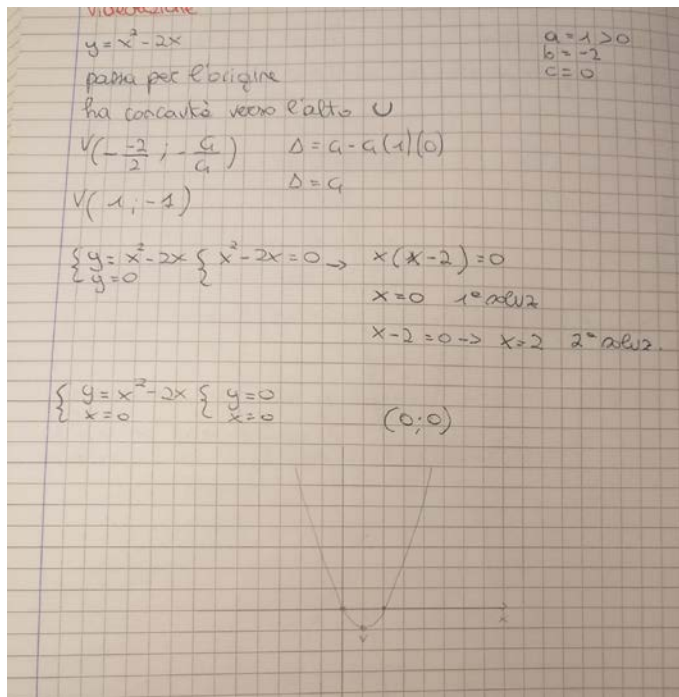 y = x² - 2x
a = 1 > 0
b = -2
c = 0
passa per l'origine
ha concavità verso l'alto ∪
V(- -2/2 ; - 4/4) Δ = 4 - 4(1)(0)
Δ = 4
V(1 ; -1)
{ y = x² - 2x { x² - 2x = 0 → x(x - 2) = 0
{ y = 0 {
x = 0 1ª soluz
x - 2 = 0 -> x = 2 2ª soluz.
{ y = x² - 2x { y = 0
{ x = 0 { x = 0 (0 ; 0)
x
V